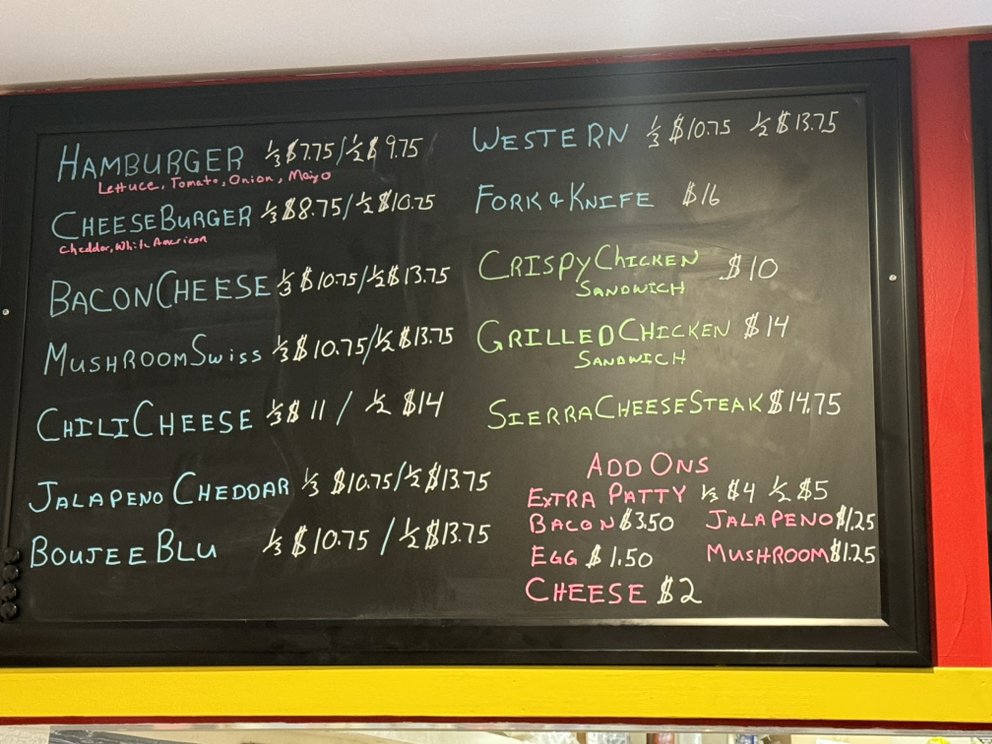 HAMBURGER ⅓ $7.75/½ $9.75
Lettuce, Tomato, Onion, Mayo
CHEESEBURGER ⅓ $8.75/½ $10.75
Cheddar, White American
BACONCHEESE ⅓ $10.75/½ $13.75
MUSHROOMSWISS ⅓ $10.75/½ $13.75
CHILICHEESE ⅓ $11 / ½ $14
JALAPENO CHEDDAR ⅓ $10.75/½ $13.75
BOUJEE BLU ⅓ $10.75 / ½ $13.75
WESTERN ⅓ $10.75 ½ $13.75
FORK & KNIFE $16
CRISPY CHICKEN $10
SANDWICH
GRILLED CHICKEN $14
SANDWICH
SIERRA CHEESE STEAK $14.75
ADD ONS
EXTRA PATTY ⅓ $4 ½ $5
BACON $3.50 JALAPENO $1.25
EGG $1.50 MUSHROOM $1.25
CHEESE $2